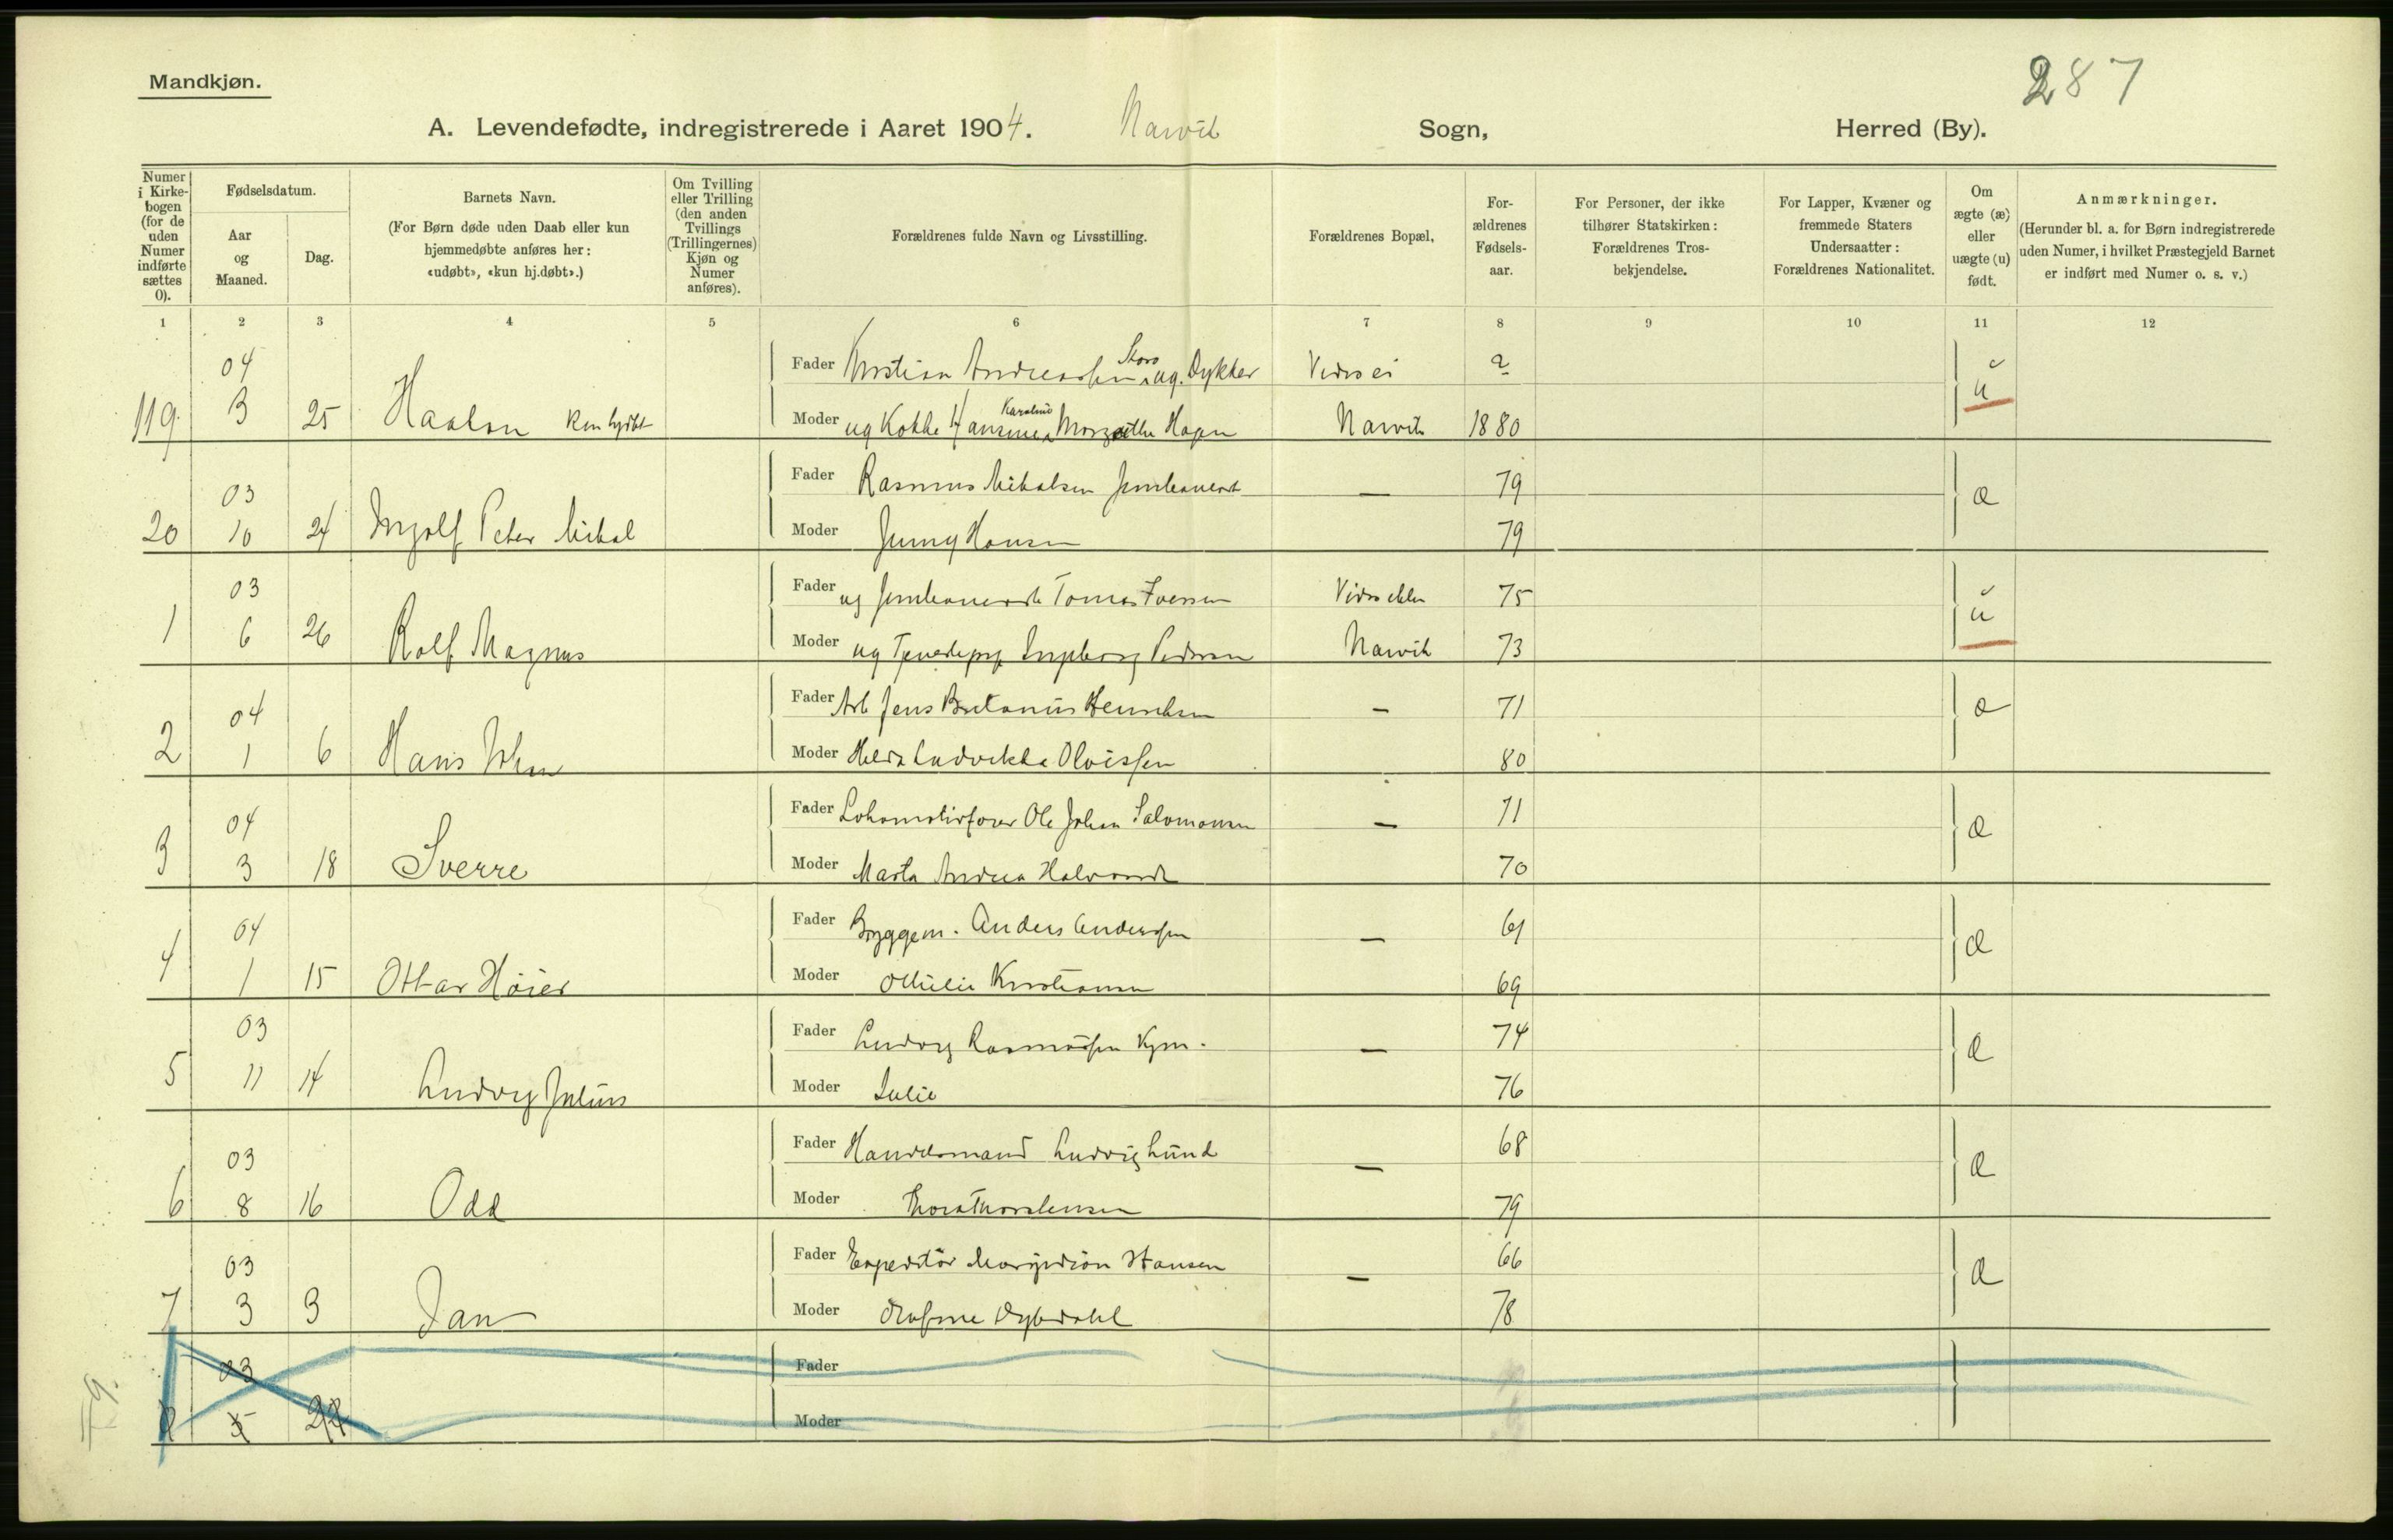 287
Mandkjøn.
A. Levendefødte, indregistrerede i Aaret 1904. Narvik Sogn, Herred (By).
Numer i Kirkebogen (for de uden Numer indførte sættes 0).
Fødselsdatum.
Aar og Maaned.
Dag.
Barnets Navn.
(For Børn døde uden Daab eller kun hjemmedøbte anføres her: «udøbt», «kun hj.døbt».)
Om Tvilling eller Trilling (den anden Tvillings (Trillingernes) Kjøn og Numer anføres).
Forældrenes fulde Navn og Livsstilling.
Forældrenes Bopæl,
Forældrenes Fødselsaar.
For Personer, der ikke tilhører Statskirken: Forældrenes Trosbekjendelse.
For Lapper, Kvæner og fremmede Staters Undersaatter: Forældrenes Nationalitet.
Om ægte (æ) eller uægte (u) født.
Anmærkninger.
(Herunder bl. a. for Børn indregistrerede uden Numer, i hvilket Præstegjeld Barnet er indført med Numer o. s. v.)
1 2 3 4 5 6 7 8 9 10 11 12
04 Fader Kristian Andreassen Storo ug. Dykker Vides ei ?
119. 3 25 Haakon Moder ug Kokke Hansine Karoline Margrethe Hagen Narvik 1880 u
03 Fader Rasmus Mikalsen Jernbanearb — 79 æ
20 10 24 Ingolf Peter Mikal Moder Jenny Hansen 79
03 Fader ug Jernbanearb Tomas Iversen Vides ikke 75 u
1 6 26 Rolf Magnus Moder ug Tjenestepige Ingeborg Pedersen Narvik 73
04 Fader Arb Jens Henriksen — 71 æ
2 1 6 Hans Johan Moder Ludvikka Olvissen 80
04 Fader Lokomotivfører Ole Johan Salomonsen — 71 æ
3 3 18 Sverre Moder Marta Andrea 70
04 Fader Byggem. Anders Anderssen — 61 æ
4 1 15 Ottar Höier Moder Ottilie Kristiansen 69
03 Fader Ludvig Rasmussen Kjm. — 74 æ
5 11 14 Ludvig Julius Moder Julie 76
03 Fader Handelsmand Ludvig Lund — 68 æ
6 8 16 Odd Moder Thora Thorstensen 79
03 Fader Expeditör Hansen — 66 æ
7 3 3 Jan Moder Dybdahl 78
03 Fader
8 5 22 Moder